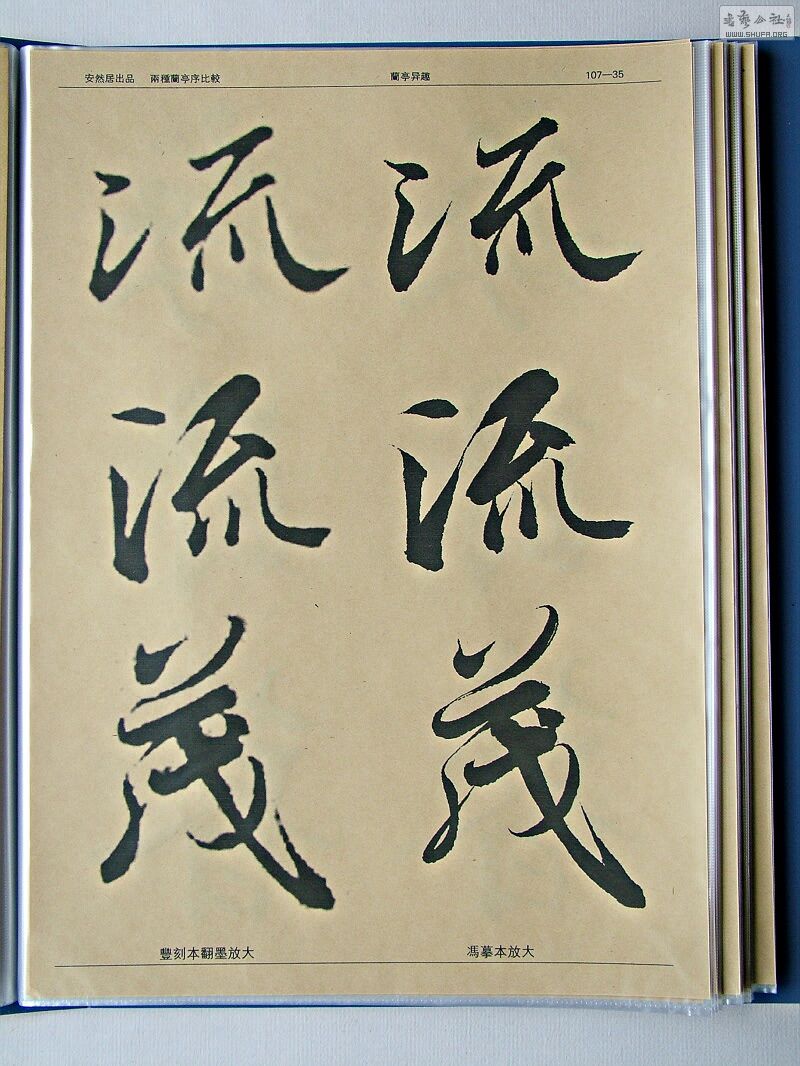 書藝公社
WWW.SHUFA.ORG
安然居出品 兩種蘭亭序比較 蘭亭异趣 107—35
流 流
流 流
茂 茂
豐刻本翻墨放大 馮摹本放大